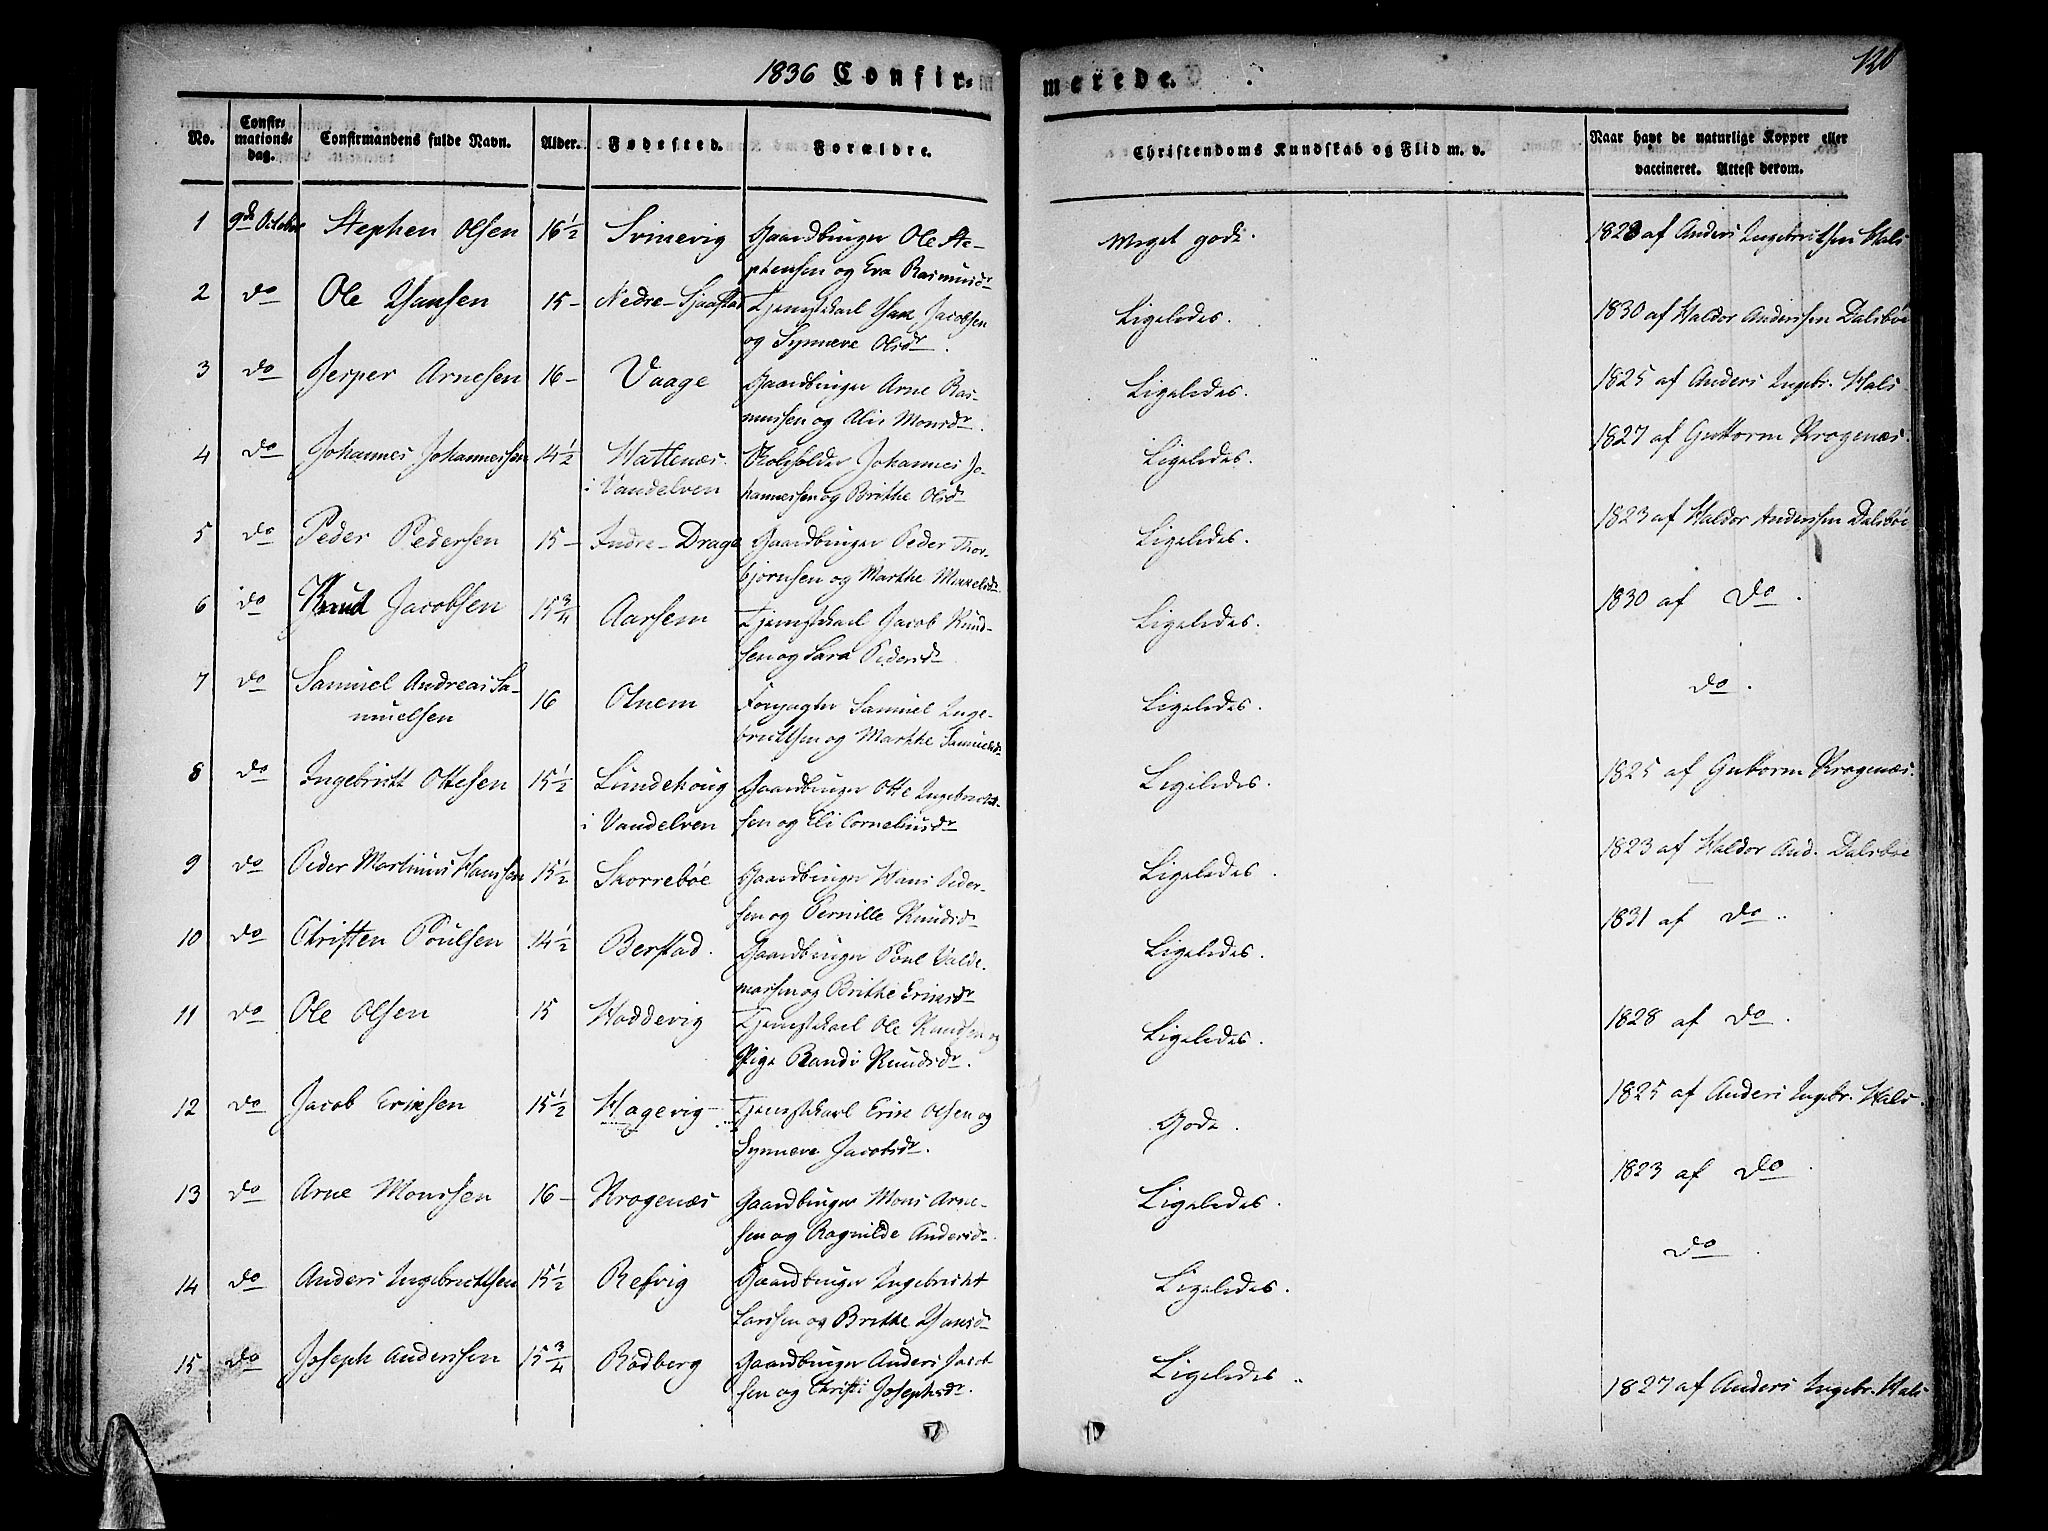 1836 Confir=
merede.
120
No.
Confir-
mations-
dag.
Confirmandens fulde Navn.
Alder.
Fødested.
Forældre.
Christendoms Kundskab og Flid m. v.
Naar havt de naturlige Kopper eller
vaccineret. Attest derom.
1 9de October Stephen Olsen 16 1/2 Svinevig Gaardbruger Ole Ste-
phensen og Eva Rasmusdr
Meget godt. 1828 af Anders Ingebrithsen Hals
2 do Ole Hansen 15- Nedre-Sjaastad Tjenstkarl Hans Jacobsen
og Synneve Olsdr.
Ligeledes. 1830 af Haldor Anderssen Dalsböe
3 do Jesper Arnesen 16- Vaage Gaardbruger Arne Ras-
mussen og Alis Monsdr.
Ligeledes. 1825 af Anders Ingebr. Hals
4 do Johannes Johannessen 14 1/2 Hattenæs
i Vandelven
Johannes Jo-
hannessen og Brithe Olsdr
Ligeledes. 1827 af Guttorm Krogenæs.
5 do Peder Pedersen 15- Indre-Drage Gaardbruger Peder Thor-
bjørnsen og Marthe Mikkelsdr
Ligeledes. 1823 af Haldor Anderssen Dalsböe
6 do Knud Jacobsen 15 3/4 Aarsem Tjenstkarl Jacob Knud-
sen og Sara Pedersdr
Ligeledes. 1830 af do.
7 do Samuel Andreas Sa-
muelsen
16 Otnem Samuel Inge-
brittsen og Marthe Samuelsdr
Ligeledes. do.
8 do Ingebritt Ottesen 15 1/2 Lundehoug
i Vandelven
Gaardbruger Otte Ingebrith-
sen og Eli Corneliusdr
Ligeledes. 1825 af Guttorm Krogenæs.
9 do Peder Martinus Hanssen 15 1/2 Skorreböe Gaardbruger Hans Peder-
sen og Pernille Knudsdr
Ligeledes. 1823 af Haldor And. Dalsböe
10 do Christen Poulsen 14 1/2 Berstad. Gaardbruger Poul Valde-
marsen og Brithe Eriksdr
Ligeledes. 1831 af do.
11 do Ole Olsen 15 Hoddevig Tjenstkarl Ole Knudsen og
Pige Randi Knudsdr.
Ligeledes. 1828 af do.
12 do Jacob Eriksen 15 1/2 Hagevig Tjenstkarl Erik Olsen og
Synneve Jacobsdr.
Godt. 1825 af Anders Ingebr. Hals.
13 do Arne Monssen 16- Krogenæs Gaardbruger Mons Arne-
sen og Ragnilde Andersdr.
Ligeledes. 1823 af do.
14 do Anders Ingebrittsen 15 1/2 Refvig Gaardbruger Ingebricht
Larssen og Brithe Hansdr
Ligeledes. do.
15 do Joseph Anderssen 15 3/4 Rödberg Gaardbruger Anders Jacob
sen og Christi Josephsdr.
Ligeledes. 1827 af Anders Ingebr. Hals